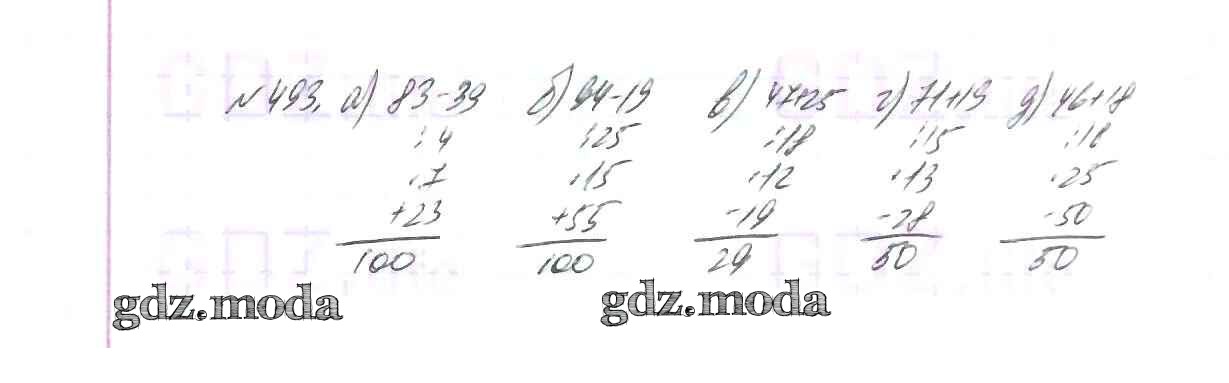 №493. а) 83-39 б) 94-19 в) 47+25 г) 71+19 д) 46+18
:4 :25 :18 :15 :16
·7 ·15 ·12 ·13 ·25
+23 +55 -19 -28 -50
100 100 29 50 50
gdz.moda gdz.moda